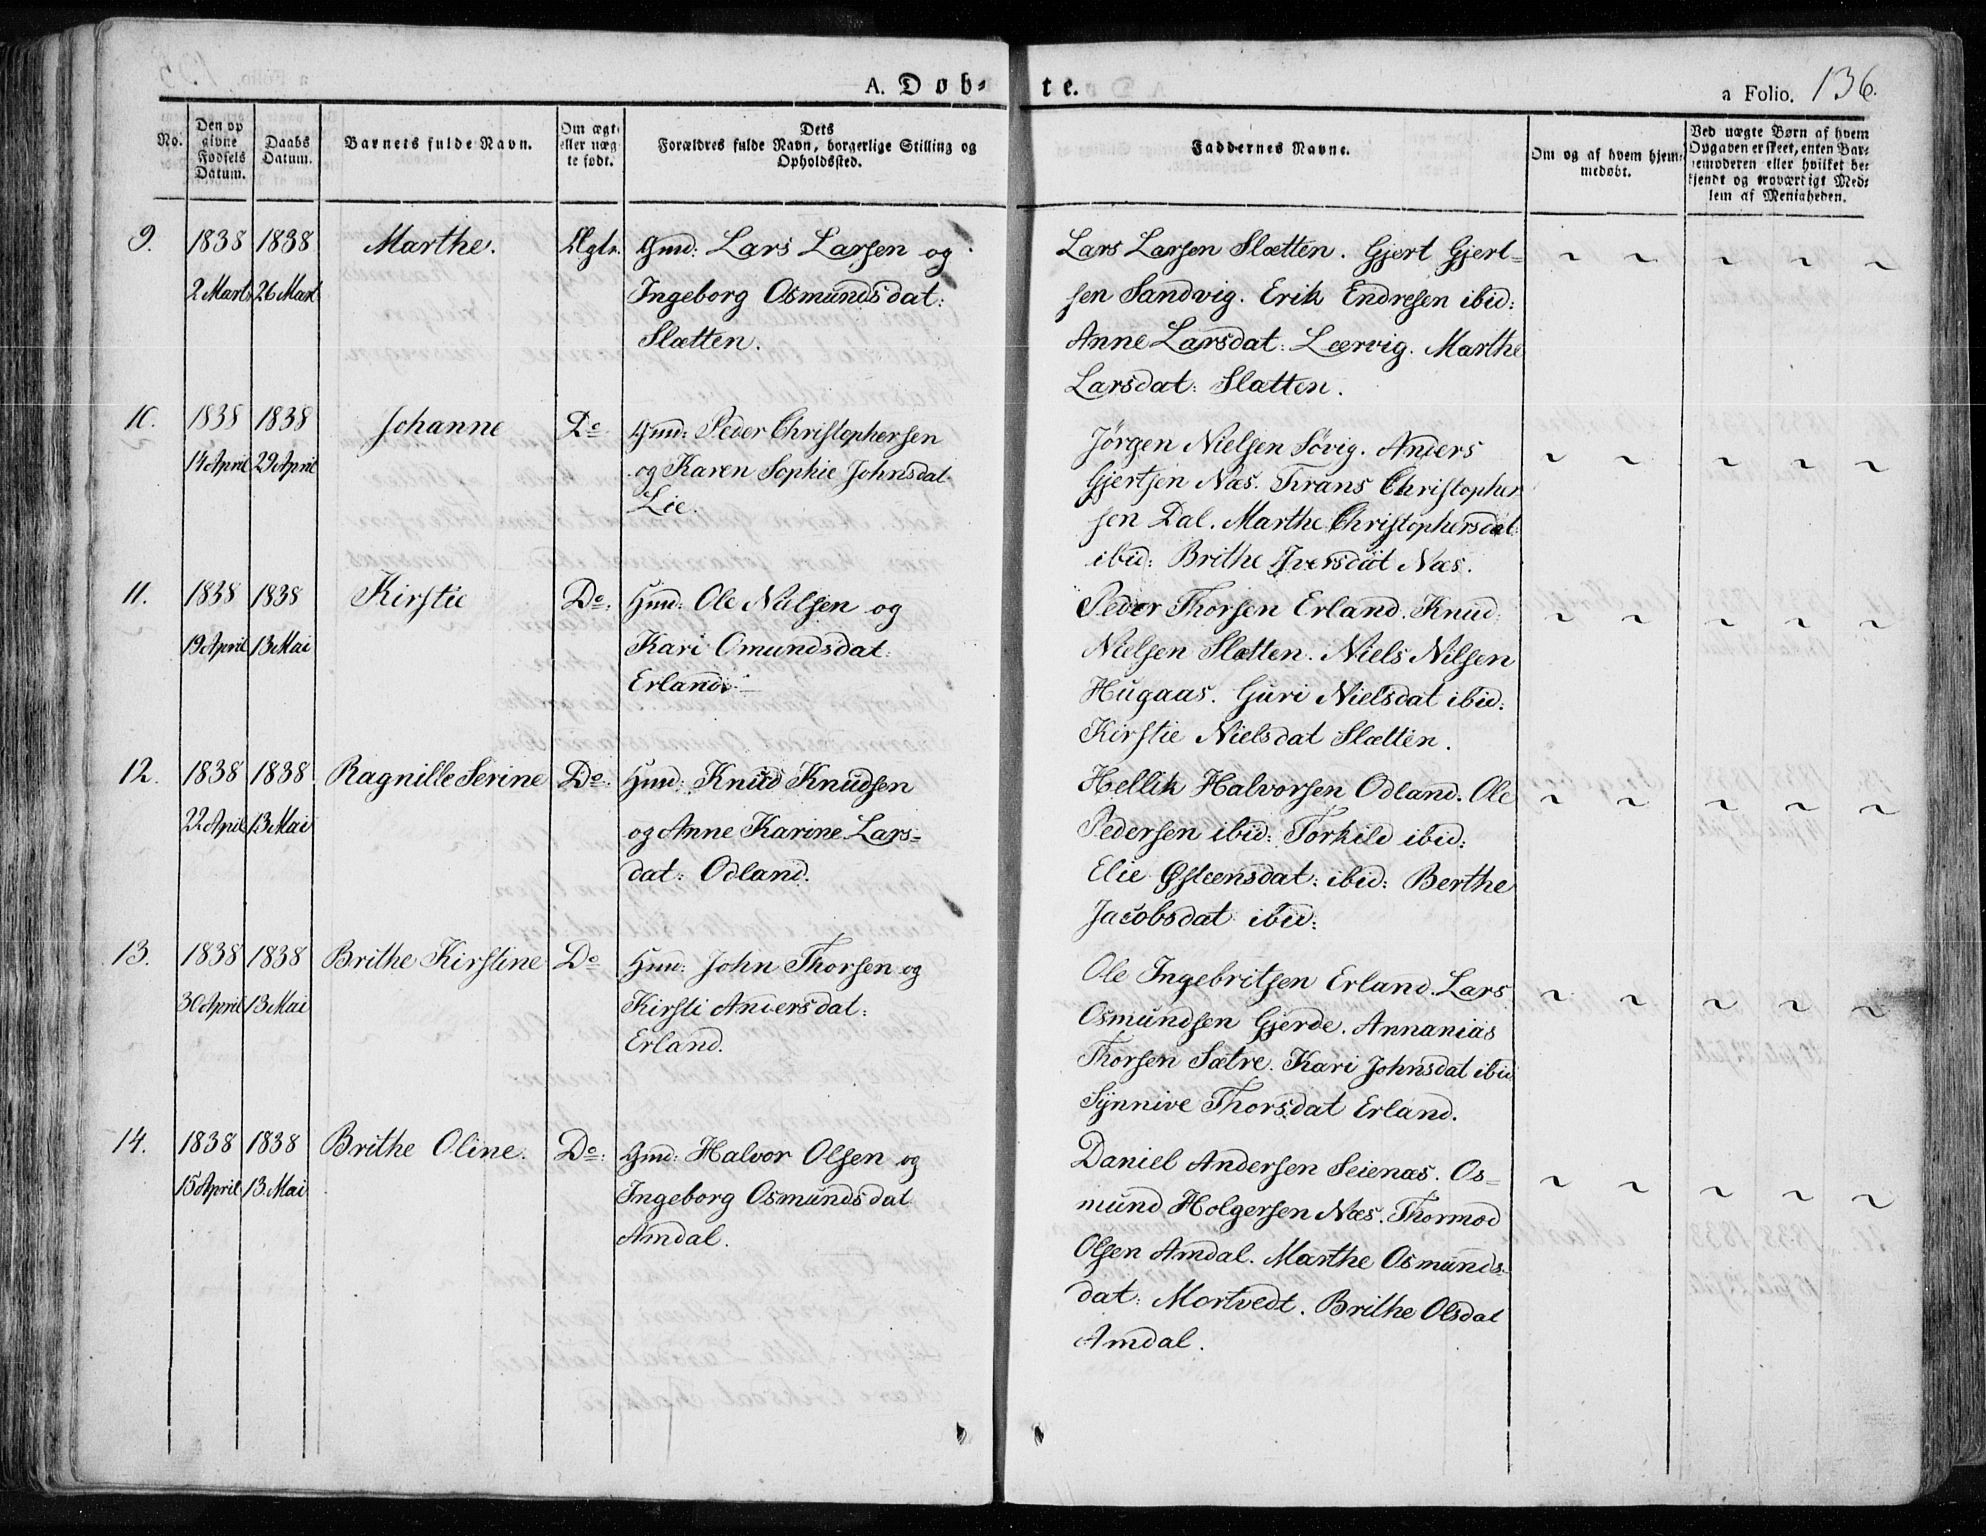 A. Døb- te. a Folio. 136.
No.
Den op
givne
Fødsels
Datum.
Daabs
Datum.
Barnets fulde Navn.
Om ægte
eller uæg
te født.
Dets
Forældres fulde Navn, borgerlige Stilling og
Opholdssted.
Faddernes Navne.
Om og af hvem hjem-
medøbt.
Ved uægte Børn af hvem
Opgaven er skeet, enten Bar-
nemoderen eller hvilket be-
kjendt og troværdigt Med-
lem af Menigheden.
9. 1838 1838 Marthe. Ægte.
2 Marts 26 Marts
Gmd: Lars Larsen og
Ingeborg Osmundsdat:
Slætten.
Lars Larsen Slætten. Gjert Gjert-
sen Sandvig. Erik Endresen ibid:
Anne Larsdat: Leervig. Marthe
Larsdat: Slætten.
10. 1838 1838 Johanne Do
14 April 29 April
Gmd: Peder Christophersen
og Karen Sophie Johnsdat.
Lie.
Jørgen Nielsen Søvig. Anders
Gjertsen Næs. Frans Christopher
sen Dal. Marthe Christophersdat:
ibid: Brithe Iversdat Næs.
11. 1838 1838 Kirstie Do:
19 April 13 Mai
Hmd: Ole Nielsen og
Kari Omundsdat:
Erland.
Peder Thorsen Erland. Knud
Nielsen Slætten. Niels Nilsen
Hugaas. Guri Nielsdat ibid:
Kirstie Nielsdat Slætten.
12. 1838 1838 Ragnille Serine Do:
22 April 13 Mai
Hmd: Knud Knudsen
og Anne Karine Lars-
dat: Odland.
Hellik Halvorsen Odland. Ole
Pedersen ibid: Torkild ibid:
Elie Østeensdat: ibid: Berthe
Jacobsdat ibid:
13. 1838 1838 Brithe Kirstine Do
30 April 13 Mai
Hmd: John Thorsen og
Kirsti Andersdat:
Erland.
Ole Ingebritsen Erland. Lars
Osmundsen Gjerde. Annanias
Thorsen Sætre. Kari Johnsdat ibid
Synnive Thorsdat Erland.
14. 1838 1838 Brithe Oline. Do:
15 April 13. Mai
Gmd: Halvor Olsen og
Ingeborg Osmundsdat
Amdal.
Daniel Andersen Seienæs. Os-
mund Holgersen Næs. Thormod
Olsen Amdal. Marthe Osmunds-
dat: Mortvedt. Brithe Olsdat
Amdal.